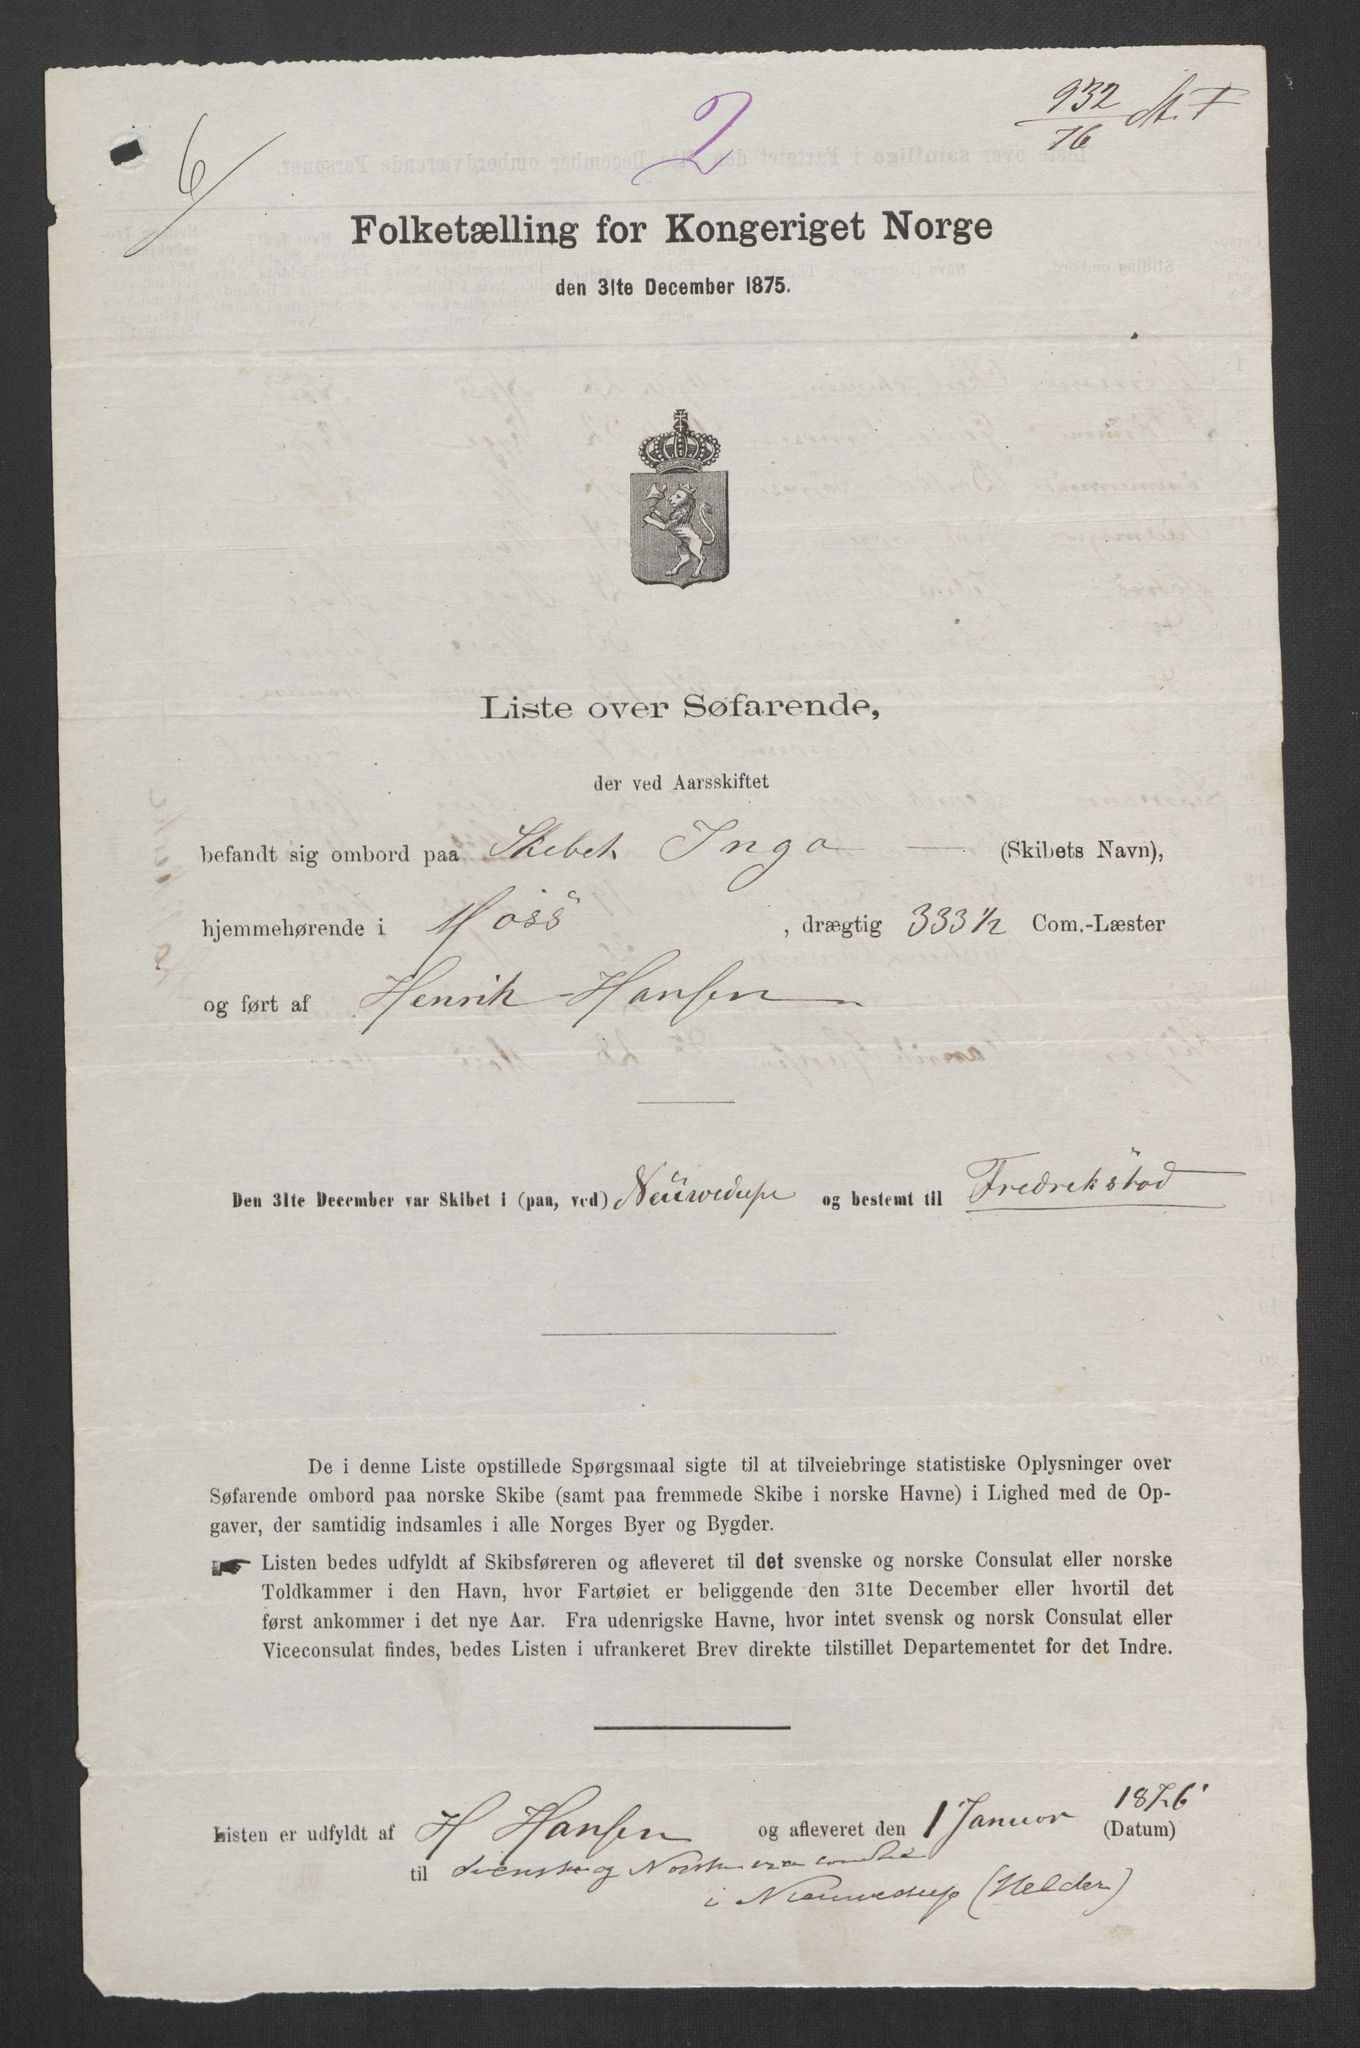 6
2
932
76
Folketælling for Kongeriget Norge
den 31te December 1875.
Liste over Søfarende,
der ved Aarsskiftet
befandt sig ombord paa Skibet Inga (Skibets Navn),
hjemmehørende i Moss, drægtig 333 1/2 Com.-Læster
og ført af Henrik Hansen
Den 31te December var Skibet i (paa, ved) Nieuwediep og bestemt til Fredrikstad
De i denne Liste opstillede Spørgsmaal sigte til at tilveiebringe statistiske Oplysninger over
Søfarende ombord paa norske Skibe (samt paa fremmede Skibe i norske Havne) i Lighed med de Op-
gaver, der samtidig indsamles i alle Norges Byer og Bygder.
Listen bedes udfyldt af Skibsføreren og afleveret til det svenske og norske Consulat eller norske
Toldkammer i den Havn, hvor Fartøiet er beliggende den 31te December eller hvortil det
først ankommer i det nye Aar. Fra udenrigske Havne, hvor intet svensk og norsk Consulat eller
Viceconsulat findes, bedes Listen i ufrankeret Brev direkte tilstillet Departementet for det Indre.
Listen er udfyldt af H Hansen og afleveret den 1 Januar 1876 (Datum)
til Svensk og Norsk
i Nieuwediep (Helder)